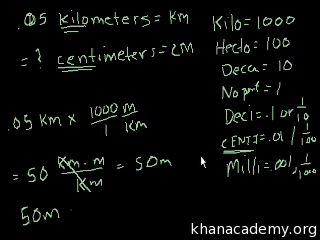 .05 kilometers = km
= ? centimeters = cm
.05 km x 1000/1 m/km
= 50 km·m/km = 50m
50m
Kilo = 1000
Hecto = 100
Deca = 10
No pref = 1
Deci = .1 or 1/10
CENTI = .01 / 1/100
Milli = .001, 1/1000
khanacademy.org